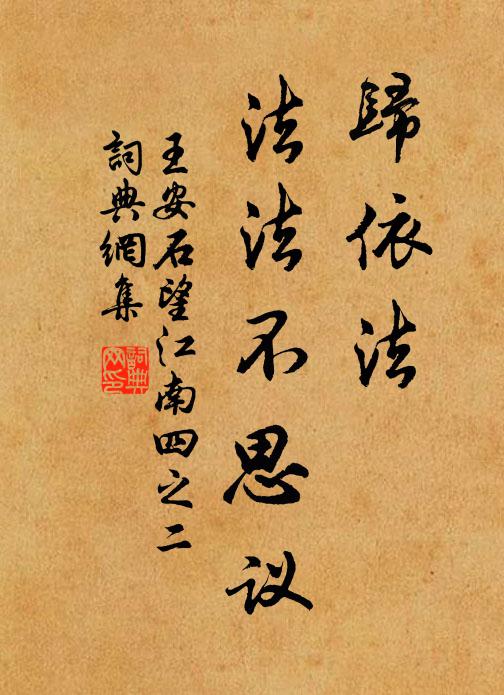 歸依法
法法不思议
王安石望江南四之二
詞典網集
詞典網印